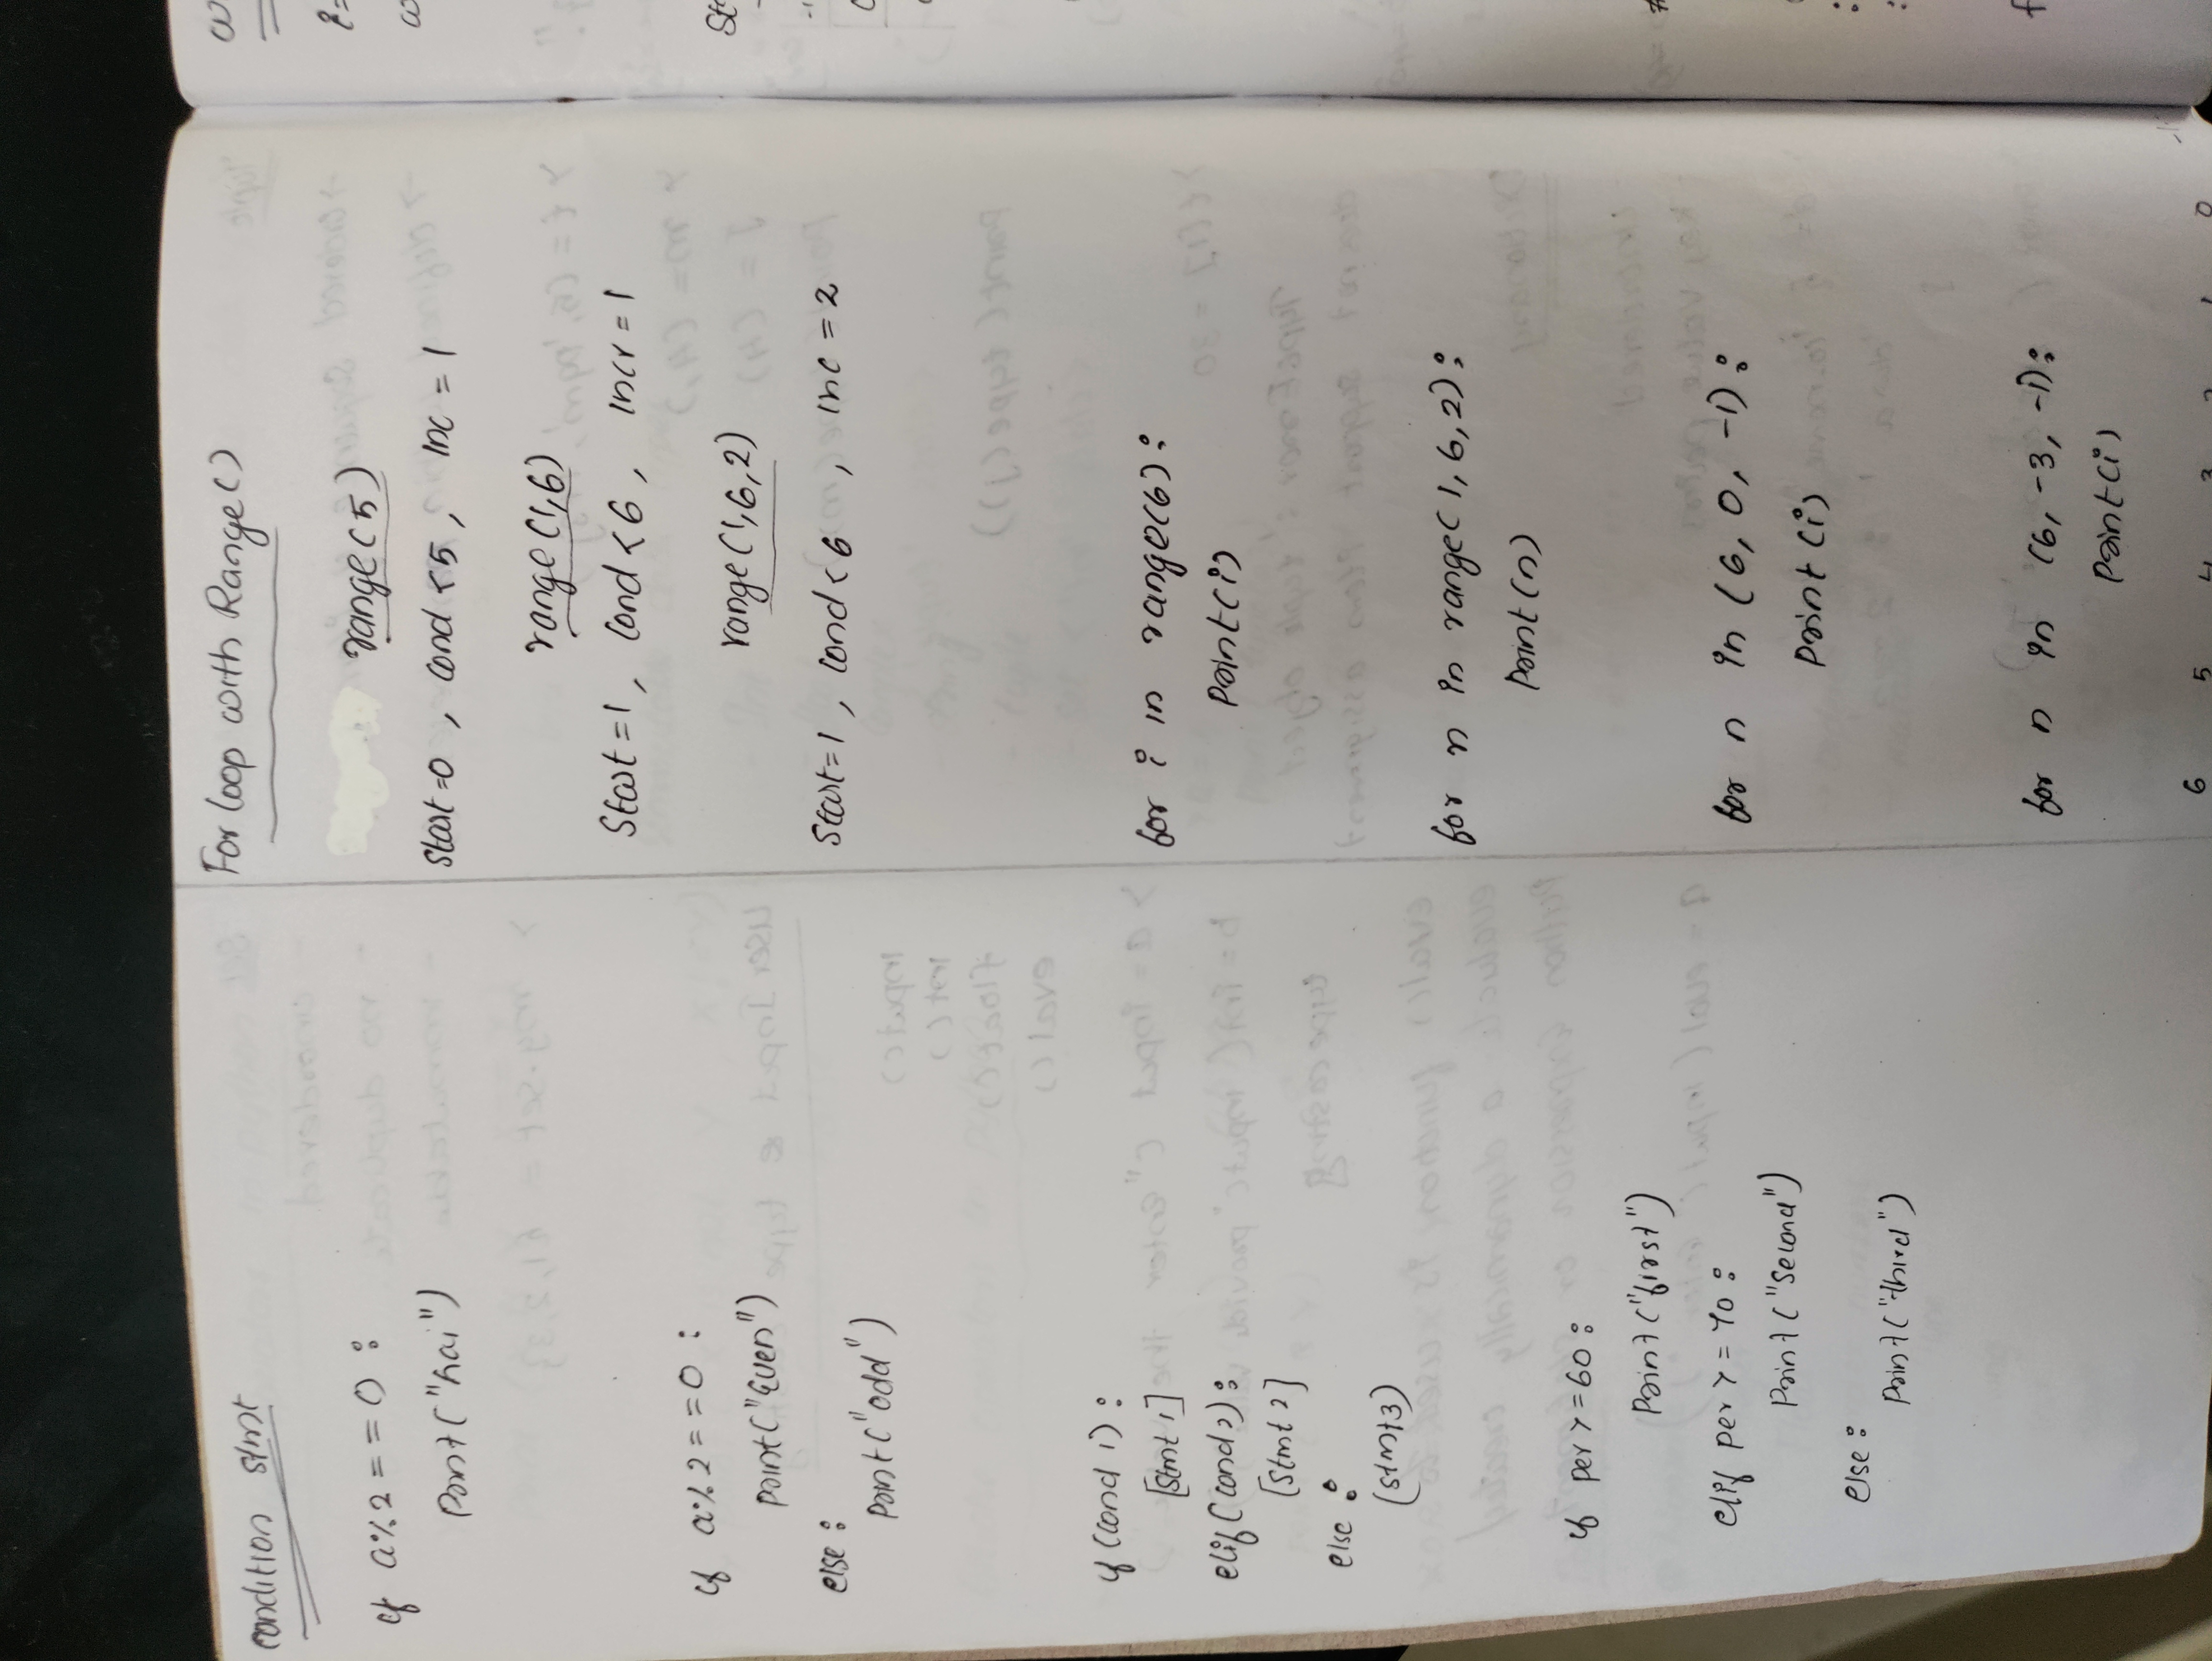 condition stmt
if a%2 == 0 :
Print("hai")
if a%2 == 0 :
print("Even")
else :
Print("odd")
if (cond 1) :
[stmt 1]
elif (cond 2) :
[stmt 2]
else :
(stmt3)
if per >= 60 :
Print("first")
elif per >= 40 :
Print("Second")
else :
Print("third")
For loop with Range()
range(5)
Start=0 , cond <5 , Inc = 1
range(1,6)
Start=1 , cond <6 , Incr = 1
range(1,6,2)
Start=1 , cond <6 , Inc = 2
for i in range(6) :
Print(i)
for n in range(1,6,2) :
Print(n)
for n in (6, 0, -1) :
Print(i)
for n in (6, -3, -1) :
Print(i)
6 5 4 3 2 1 0